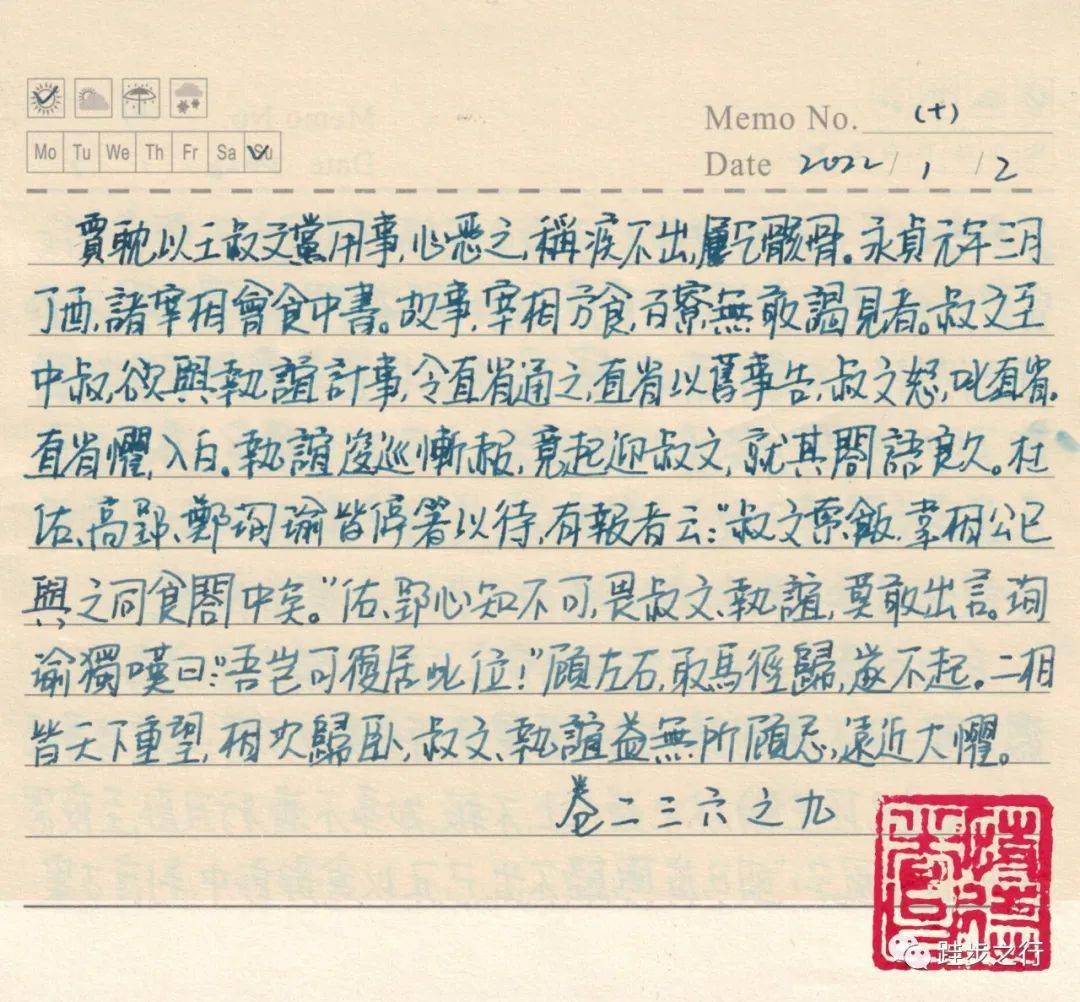 Memo No. (十)
Mo Tu We Th Fr Sa Su
Date 2022/1/2
賈耽以王叔文黨用事,心惡之,稱疾不出,屢乞骸骨。永貞元年三月
丁酉,諸宰相會食中書。故事,宰相方食,百寮無敢謁見者。叔文至
中叔,欲與執誼計事,令直省通之,直省以舊事告,叔文怒,叱直省。
直省懼,入白。執誼逡巡慚赧,竟起迎叔文,就其閤語良久。杜
佑、高郢、鄭珣瑜皆停箸以待,有報者云:“叔文索飯,韋相公已
與之同食閤中矣。”佑、郢心知不可,畏叔文、執誼,莫敢出言。珣
瑜獨嘆曰:“吾豈可復居此位!”顧左右,取馬徑歸,遂不起。二相
皆天下重望,相次歸卧,叔文、執誼益無所顧忌,遠近大懼。
卷二三六之九
跬步之行